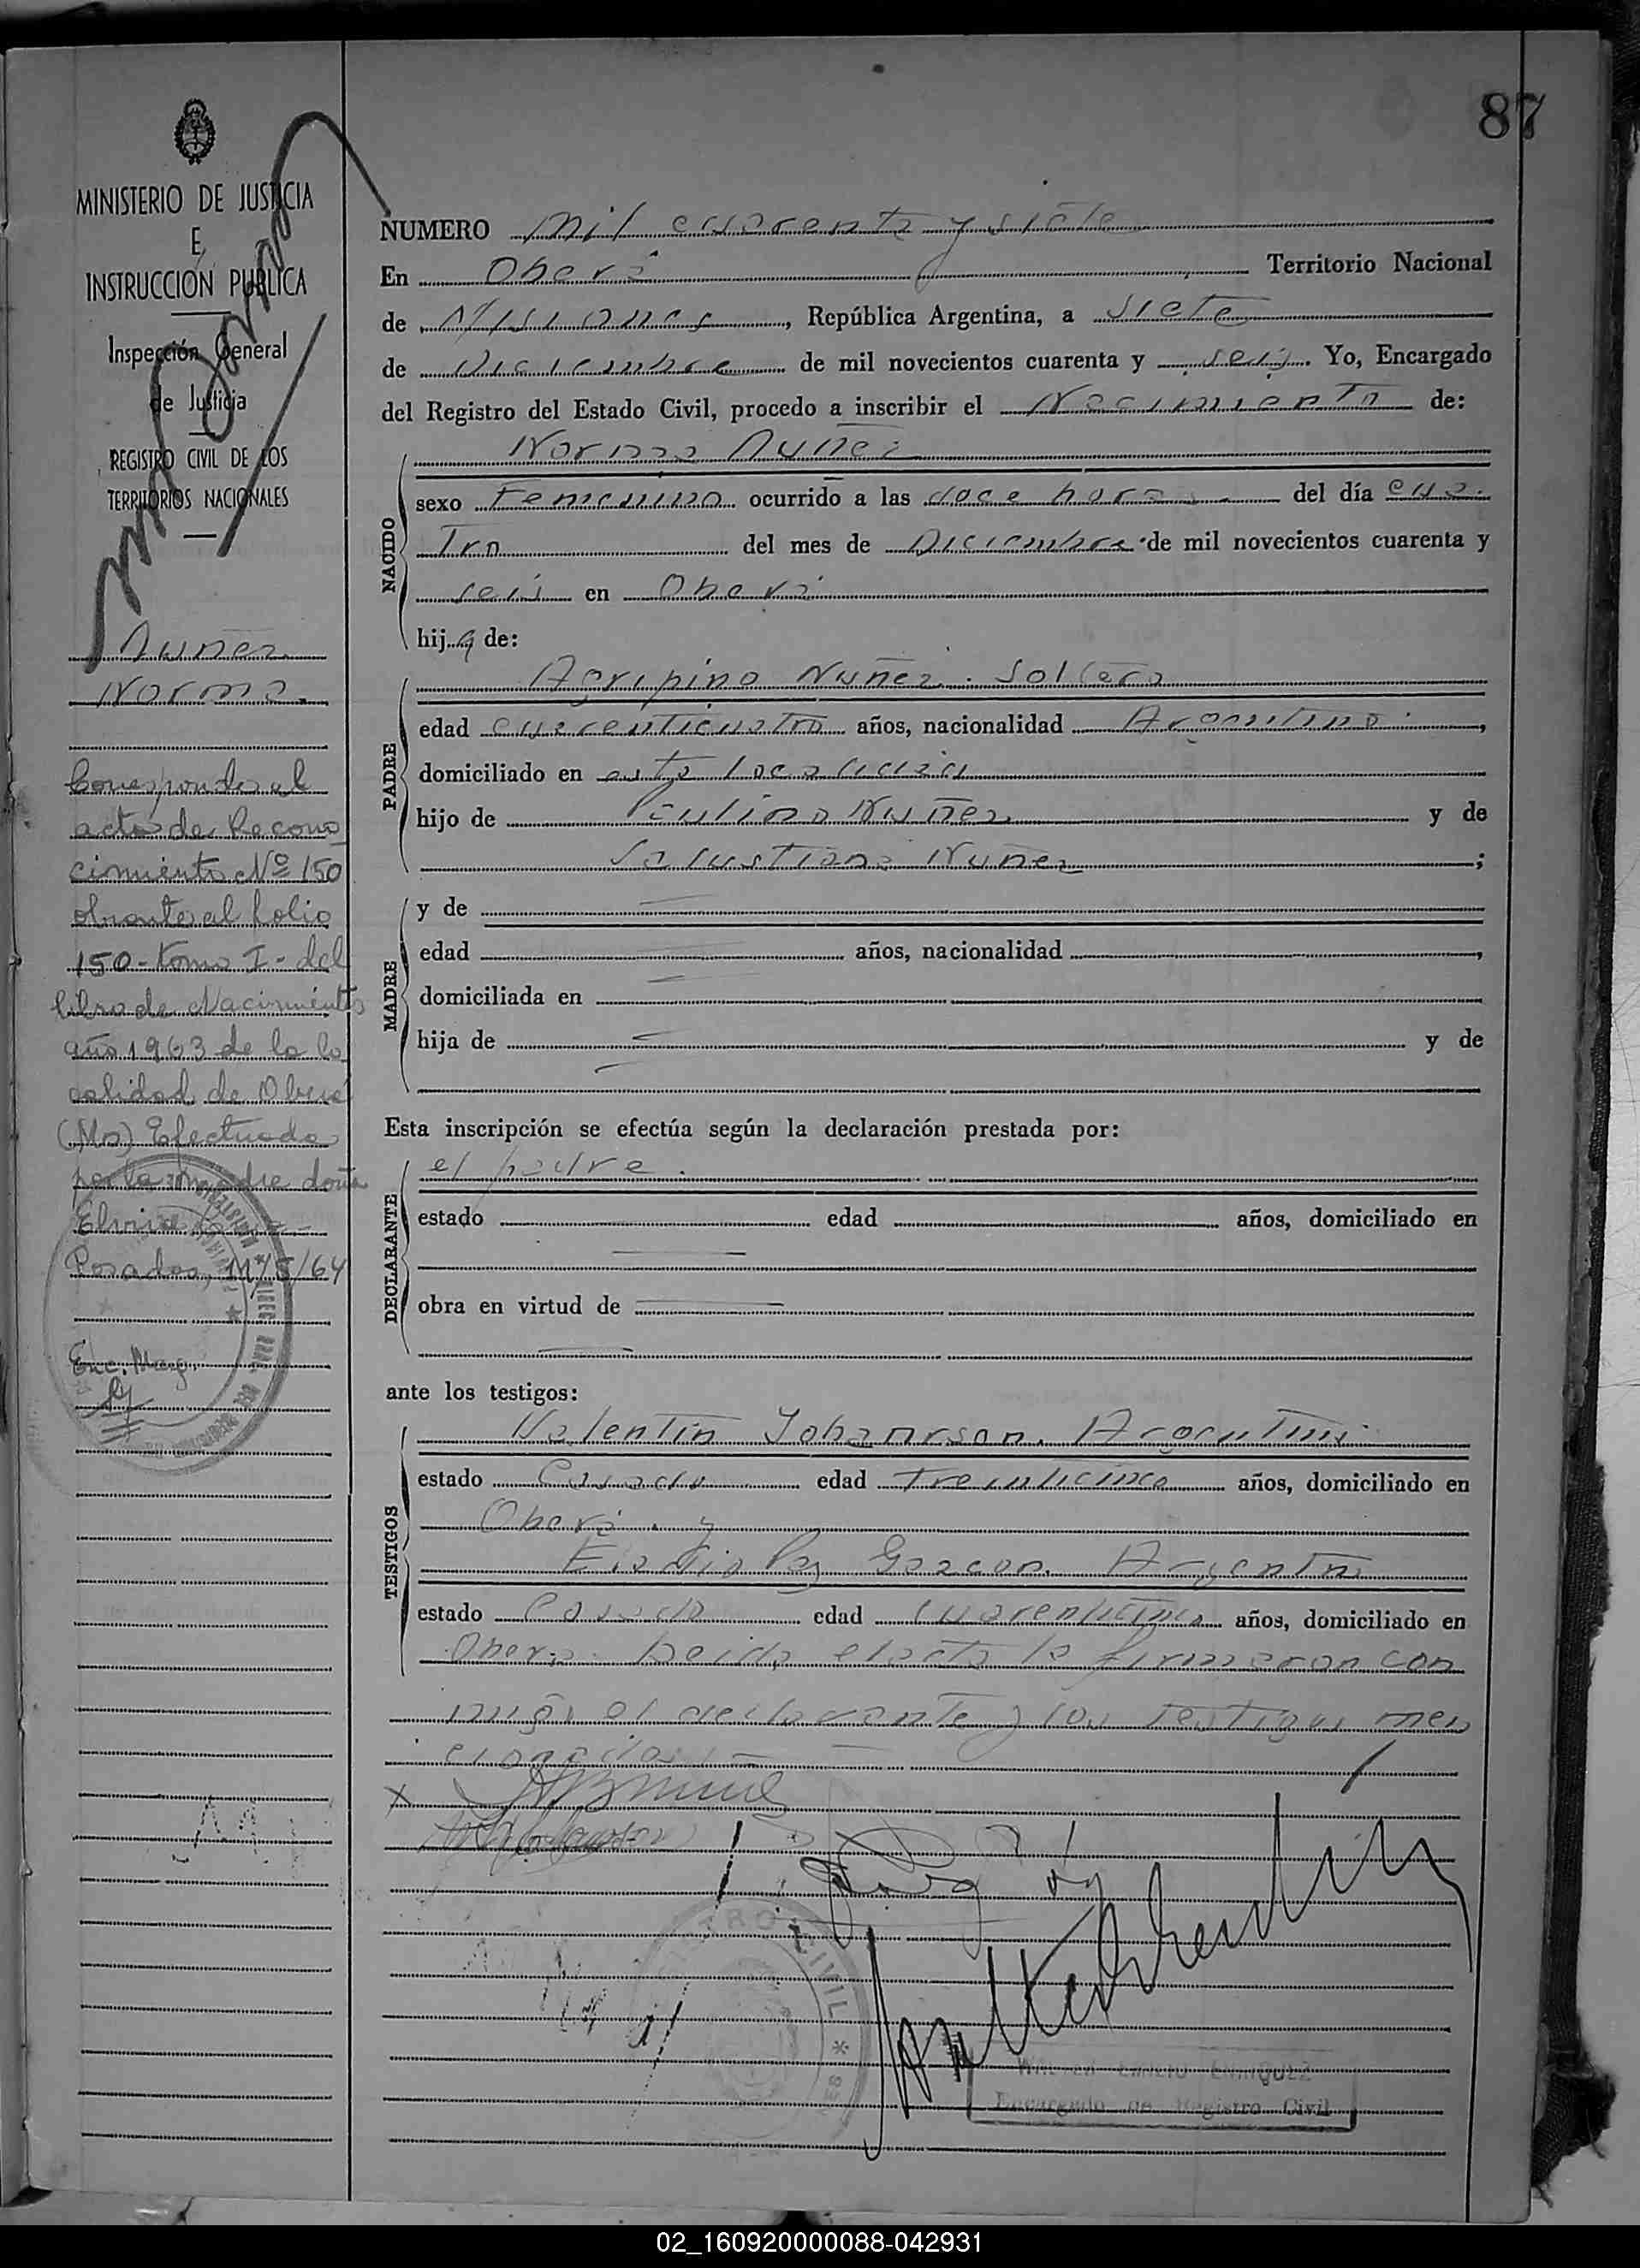 87
MINISTERIO DE JUSTICIA
E
INSTRUCCIÓN PUBLICA
Inspección General
de Justicia
REGISTRO CIVIL DE LOS
TERRITORIOS NACIONALES
Nuñez
Norma.
Corresponde al
acta de Recono
cimiento Nº 150
obrante al folio
150 - tomo I - del
libro de Nacimientos
año 1963 de la lo
calidad de Oberá
(Ms) Efectuada
por la madre doña
Elvira
Posadas, 11/5/64
Enc. Mag.
NUMERO mil cuarenta y siete
En Oberá Territorio Nacional
de Misiones, República Argentina, a siete
de Diciembre de mil novecientos cuarenta y seis. Yo, Encargado
del Registro del Estado Civil, procedo a inscribir el Nacimiento de:
NACIDO
Norma Nuñez
sexo Femenino ocurrido a las doce horas del día cua-
tro del mes de Diciembre de mil novecientos cuarenta y
seis en Oberá
hija de:
PADRE
Agripino Nuñez. Soltero
edad cuarenticuatro años, nacionalidad Argentino,
domiciliado en esta localidad
hijo de Paulino Nuñez y de
Salustiana Nuñez;
MADRE
y de
edad años, nacionalidad,
domiciliada en
hija de y de
Esta inscripción se efectúa según la declaración prestada por:
DECLARANTE
el padre.
estado edad años, domiciliado en
obra en virtud de
ante los testigos:
TESTIGOS
Valentin Johansson. Argentino
estado Casado edad treinticinco años, domiciliado en
Oberá. y
Eladio Paz Garzon. Argentino
estado Casado edad años, domiciliado en
Oberá. Leida el acta la firmaron con
migo el declarante y los testigos men
cionados
REGISTRO CIVIL
ENRIQUEZ
Encargado de Registro Civil
02_160920000088-042931